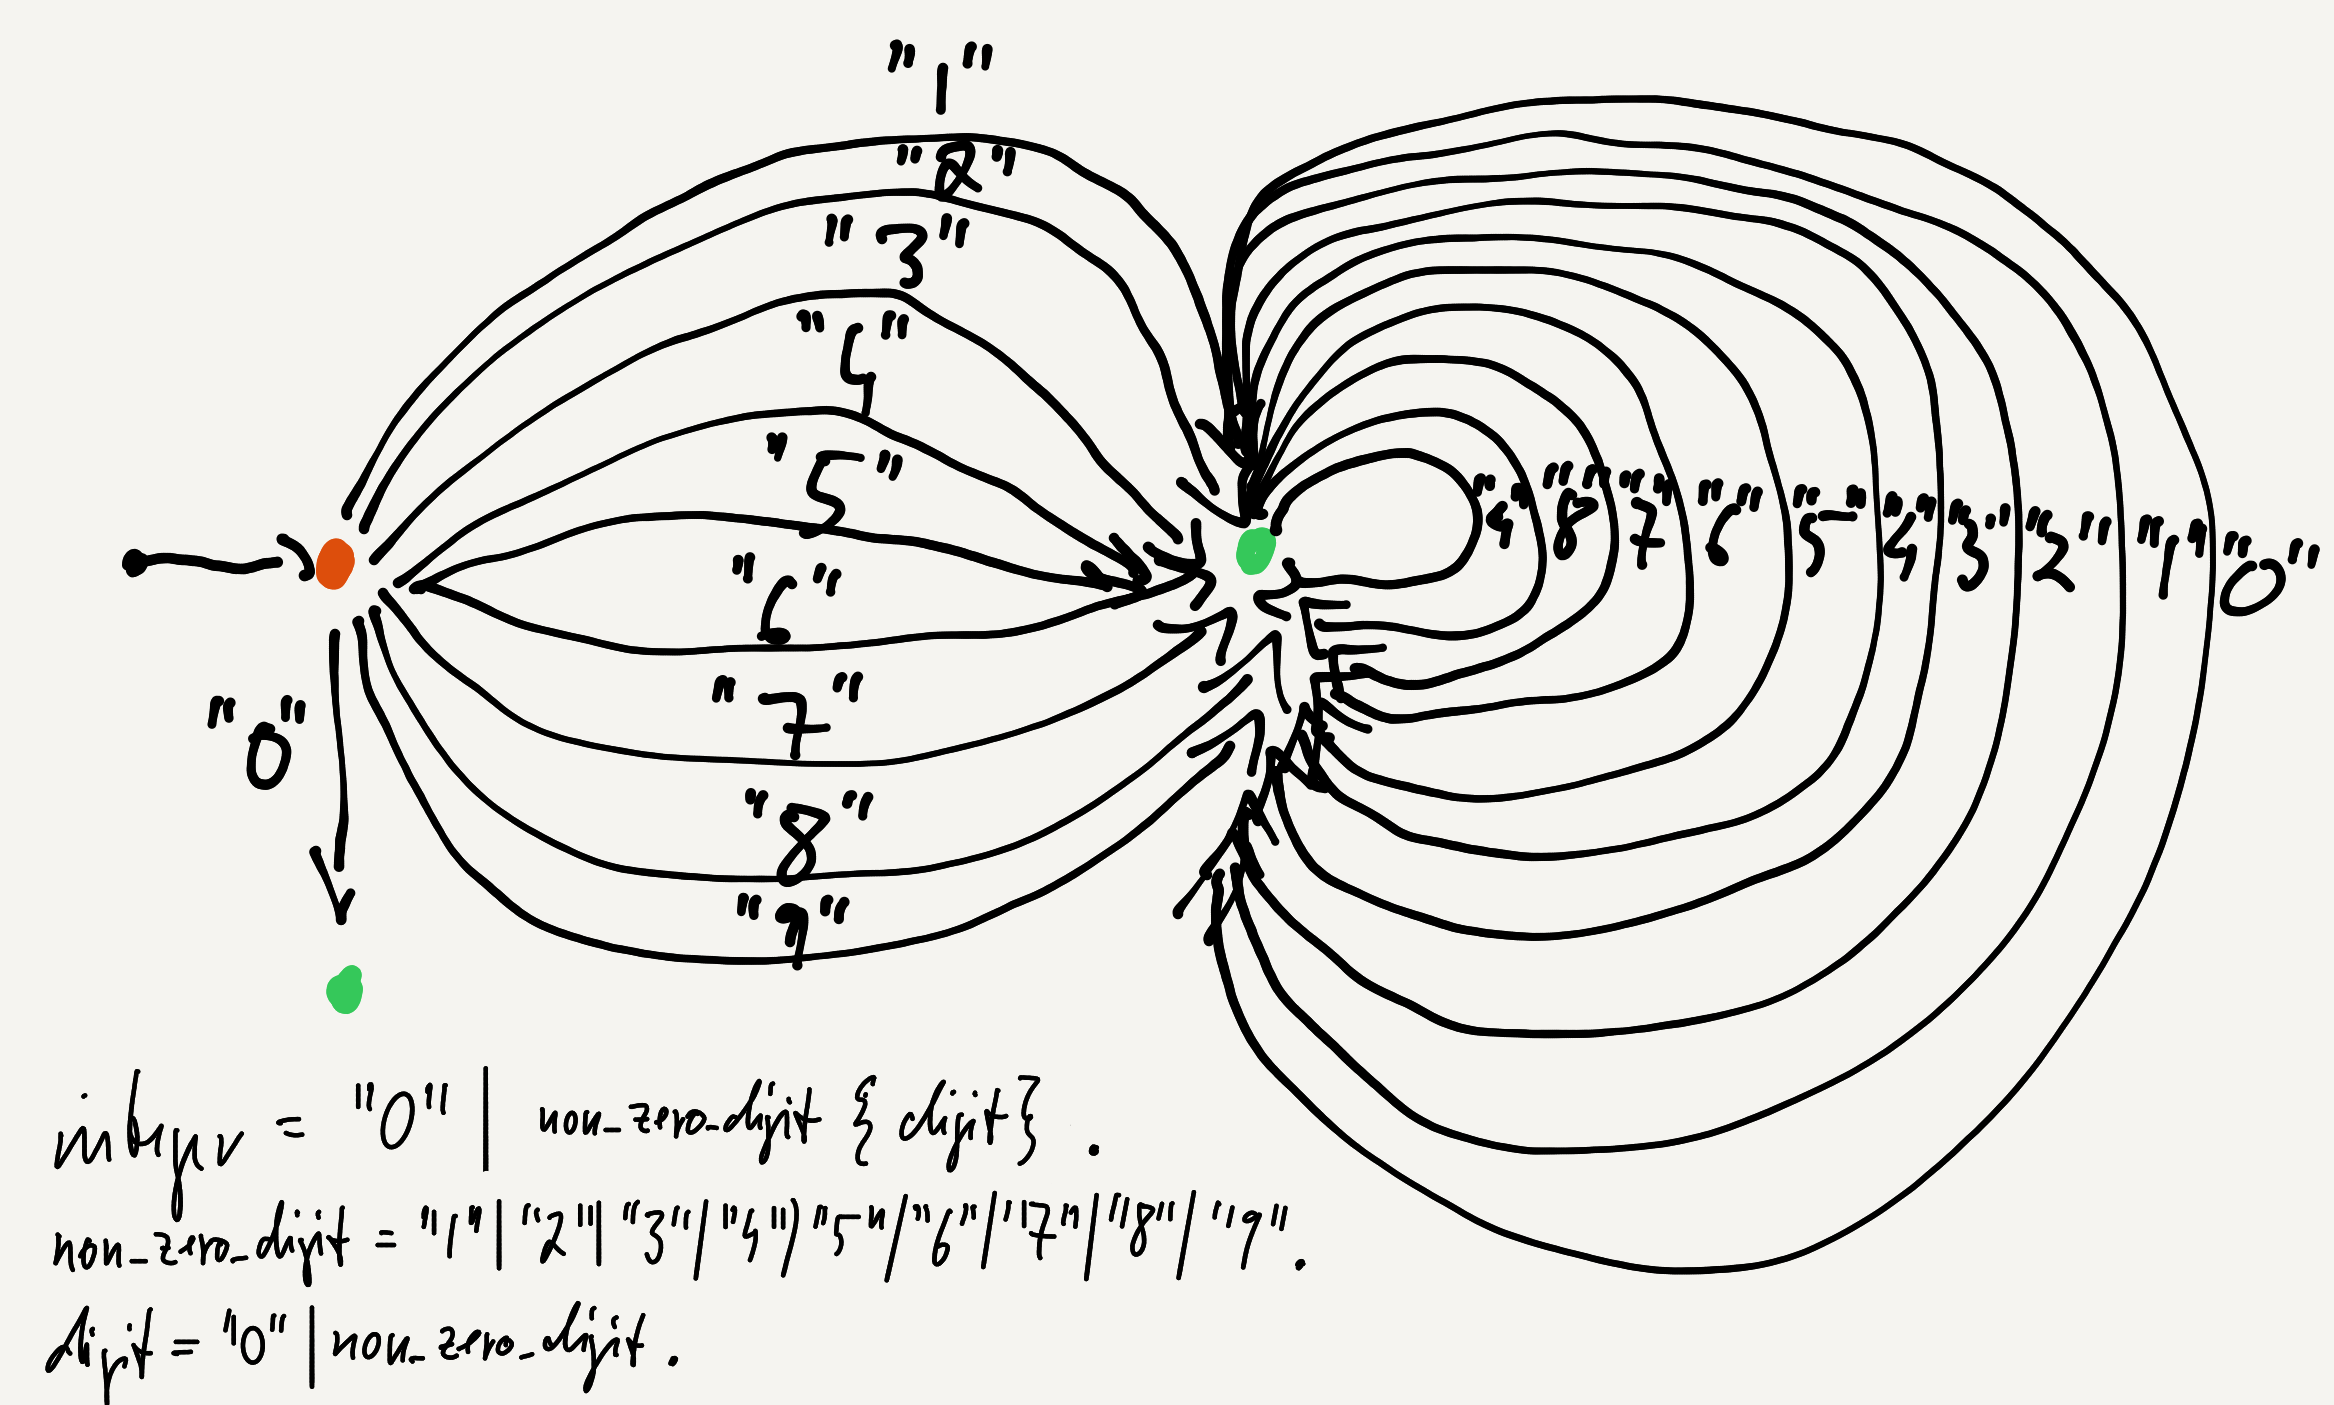 "1"
"2"
"3"
"4"
"5"
"6"
"7"
"8"
"9"
"0"
"9" "8" "7" "6" "5" "4" "3" "2" "1" "0"
integer = "0" | non_zero_digit { digit } .
non_zero_digit = "1" | "2" | "3" | "4" | "5" | "6" | "7" | "8" | "9" .
digit = "0" | non_zero_digit .